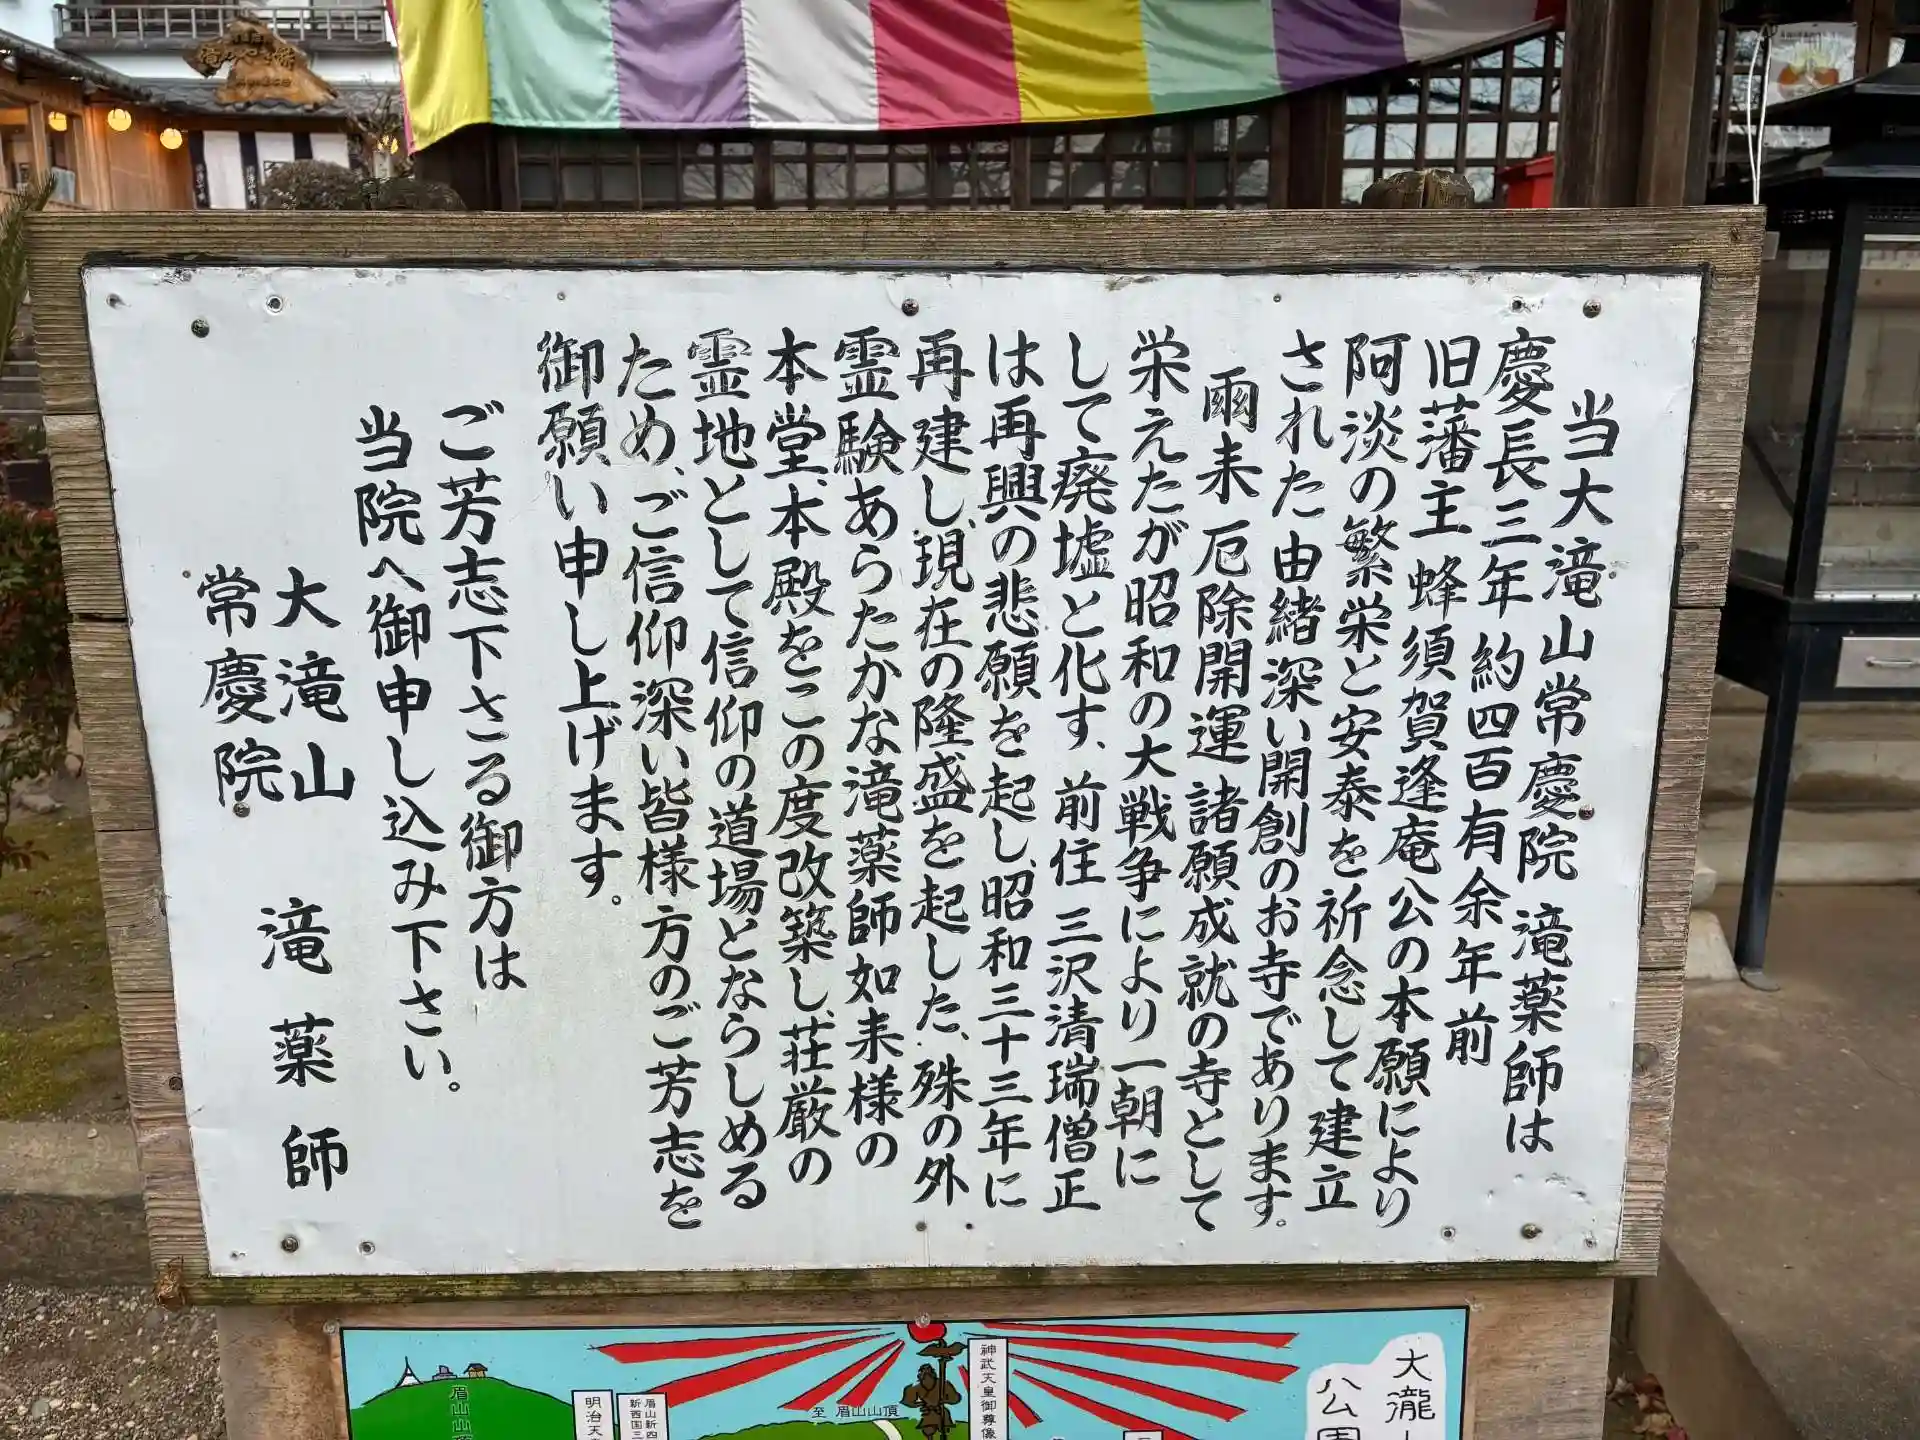 当大滝山常慶院 滝薬師は
慶長三年 約四百有余年前
旧藩主 蜂須賀逢庵公の本願により
阿淡の繁栄と安泰を祈念して建立
された由緒深い開創のお寺であります。
爾来 厄除開運 諸願成就の寺として
栄えたが昭和の大戦争により一朝に
して廃墟と化す、前住 三沢清瑞僧正
は再興の悲願を起し、昭和三十三年に
再建し、現在の隆盛を起した、殊の外
霊験あらたかな滝薬師如来様の
本堂、本殿をこの度改築し、荘厳の
霊地として信仰の道場とならしめる
ため、ご信仰深い皆様方のご芳志を
御願い申し上げます。
ご芳志下さる御方は
当院へ御申し込み下さい。
大滝山 滝薬師
常慶院
大瀧
公園
神武天皇御尊像
至 眉山山頂
眉山新四
新西国三
明治天
眉山山頂